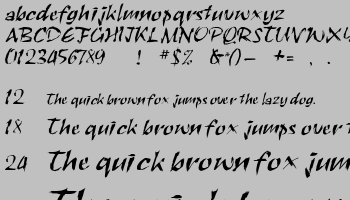 abcdefghijklmnopqrstuvwxyz
ABCDEFGHIJKLMNOPQRSTUVWXY
0123456789 ! #$% &*() - += . ,
12 The quick brown fox jumps over the lazy dog.
18 The quick brown fox jumps over t
24 The quick brown fox jum